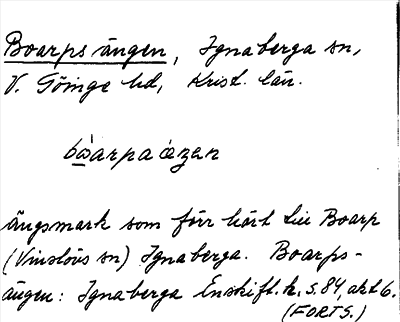 Boarpsängen, Ignaberga sn,
V. Göinge hd, Krist. län.
bòarpaázen
ängsmark som förr hört till Boarp
(Vinslövs sn) Ignaberga. Boarps-
ängen: Ignaberga Enskift. k. s. 84, akt 6.
(FORTS.)